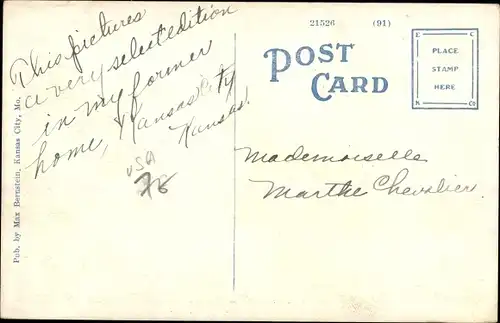 This pictures
a very select edition
in my former
home, Kansas City
Kansas!
USA
Pub. by Max Bernstein, Kansas City, Mo.
21526 (91)
POST
CARD
E C
PLACE
STAMP
HERE
K CO
Mademoiselle
Marthe Chevalier